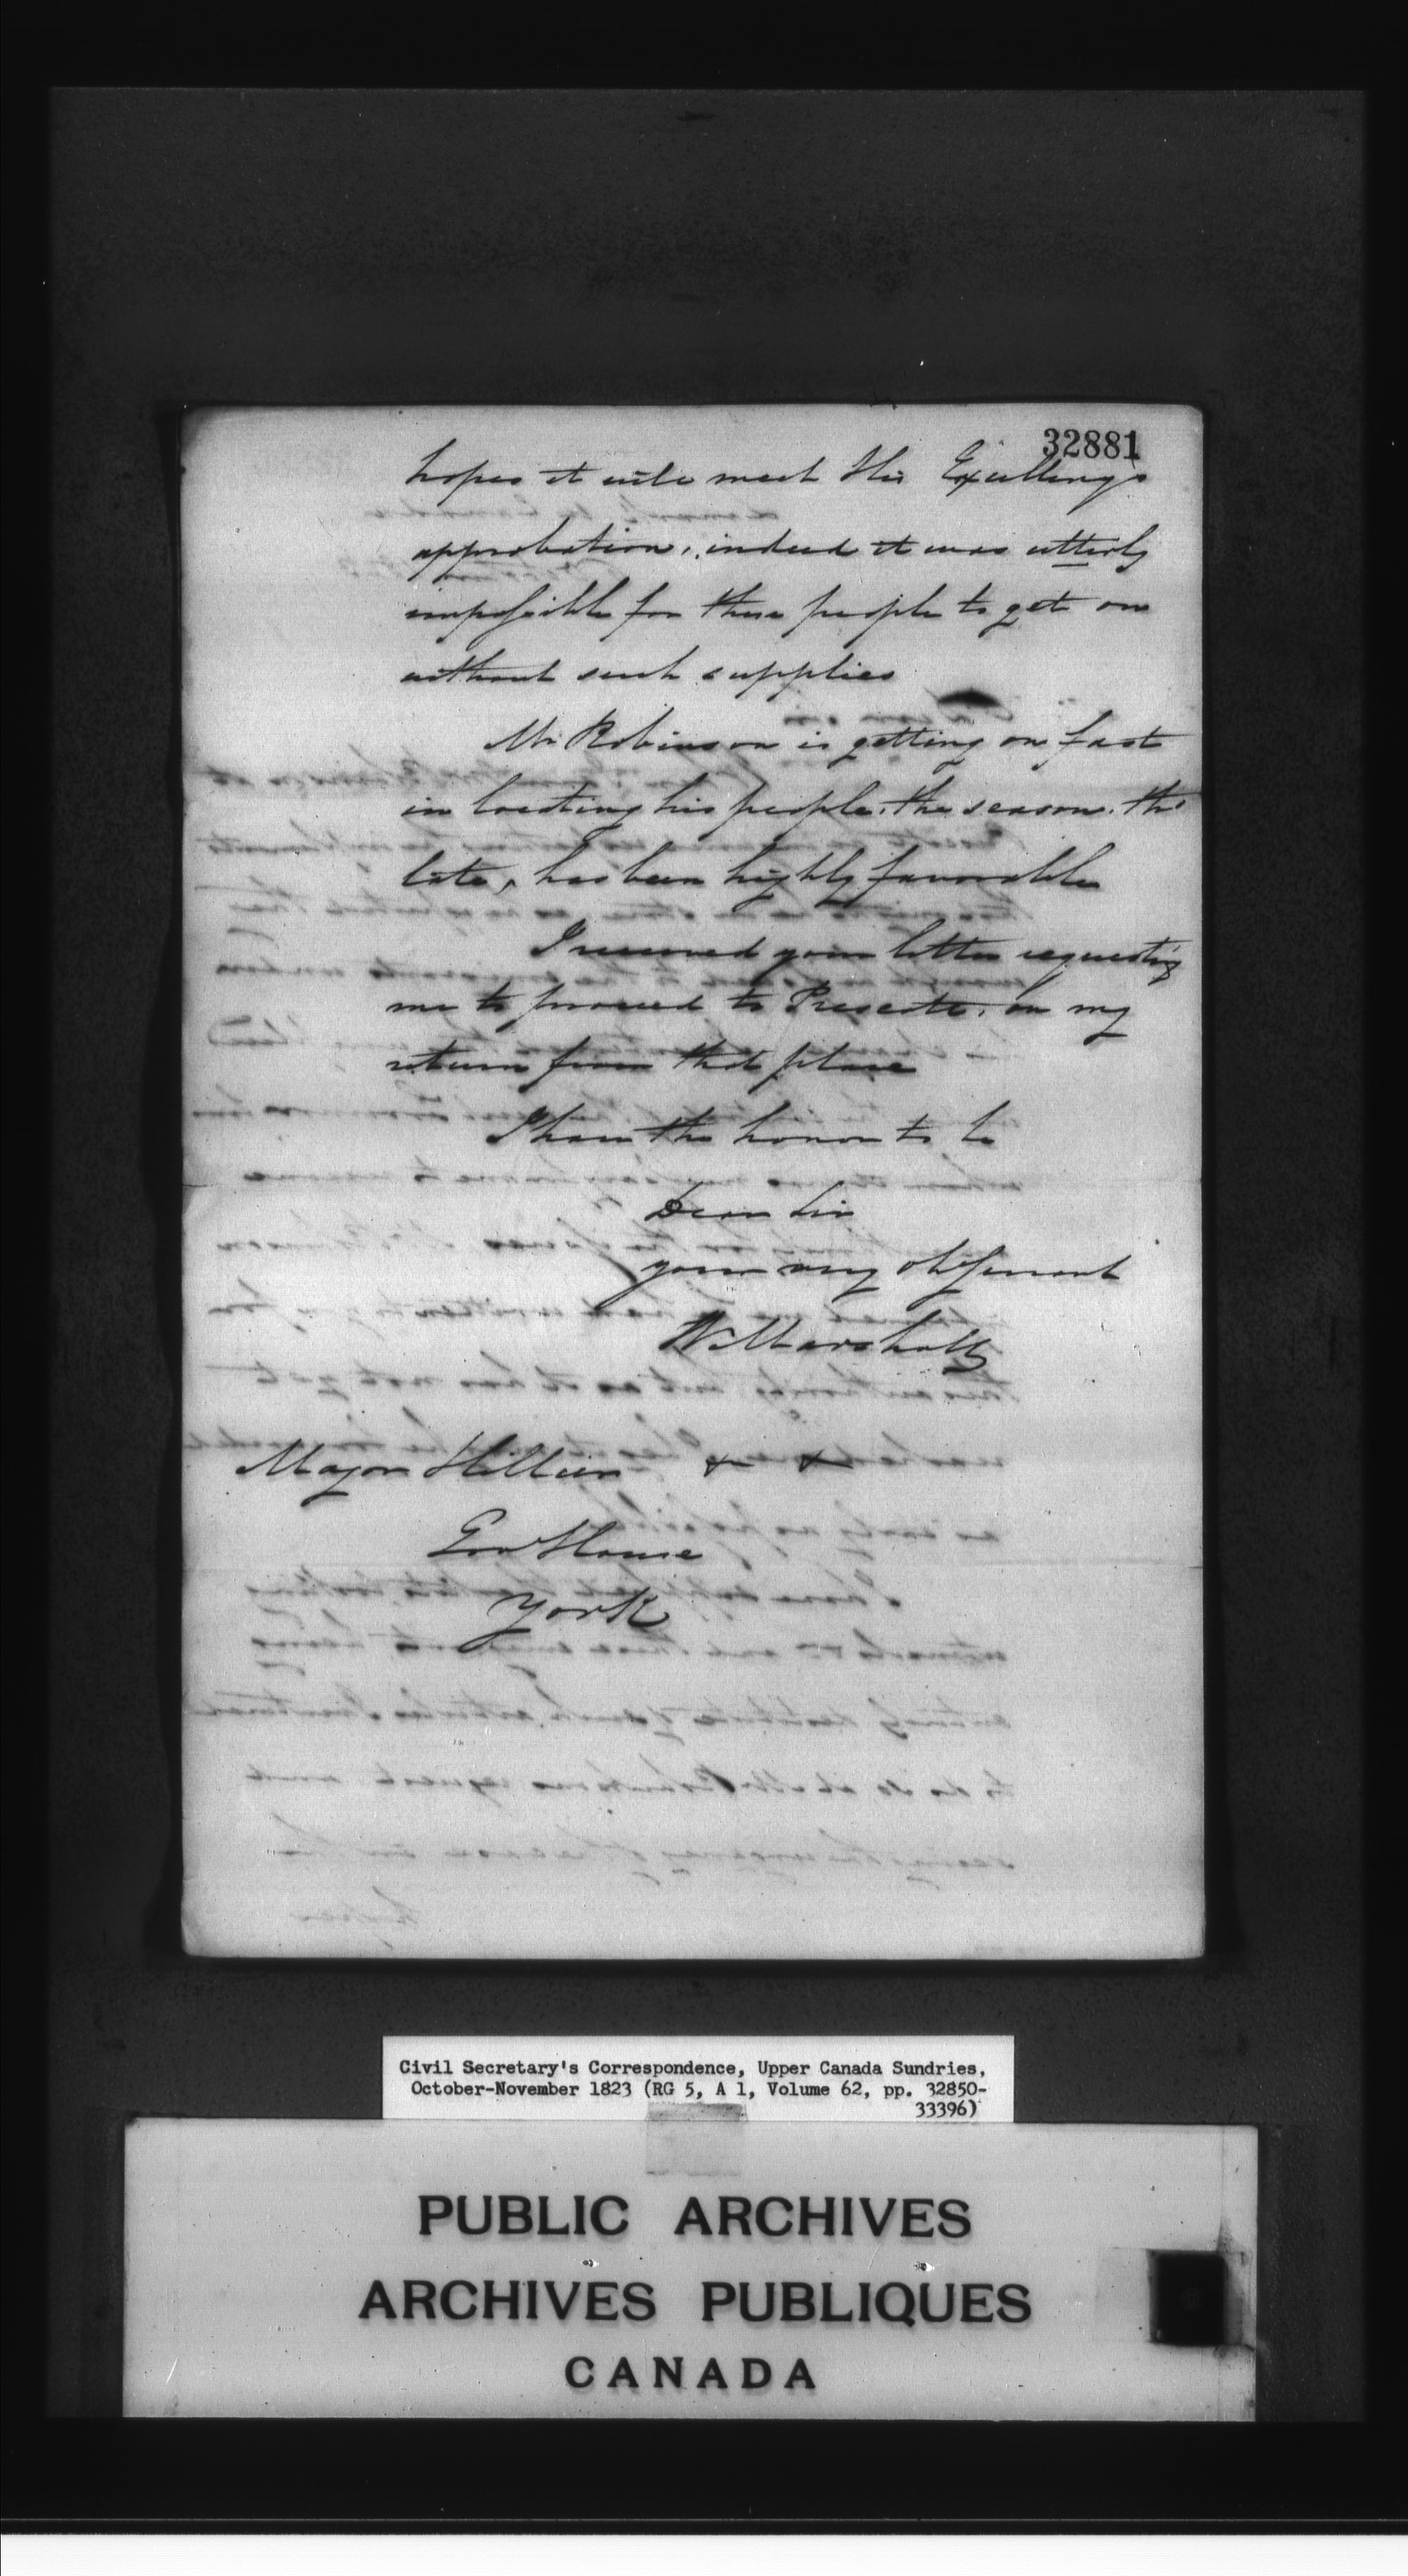 32881
hopes it will meet His Excellency's
approbation, indeed it was utterly
impossible for these people to get on
without such supplies
Mr Robinson is getting on fast
in locating his people, the season, tho'
late, has been highly favorable
I received your letter requesting
me to proceed to Prescott, on my
return from that place
I have the honor to be
Dear Sir
your very obt Servant
W Marshall
Major Hillier
Gov House
York
Civil Secretary's Correspondence, Upper Canada Sundries,
October-November 1823 (RG 5, A 1, Volume 62, pp. 32850-
33396)
PUBLIC ARCHIVES
ARCHIVES PUBLIQUES
CANADA